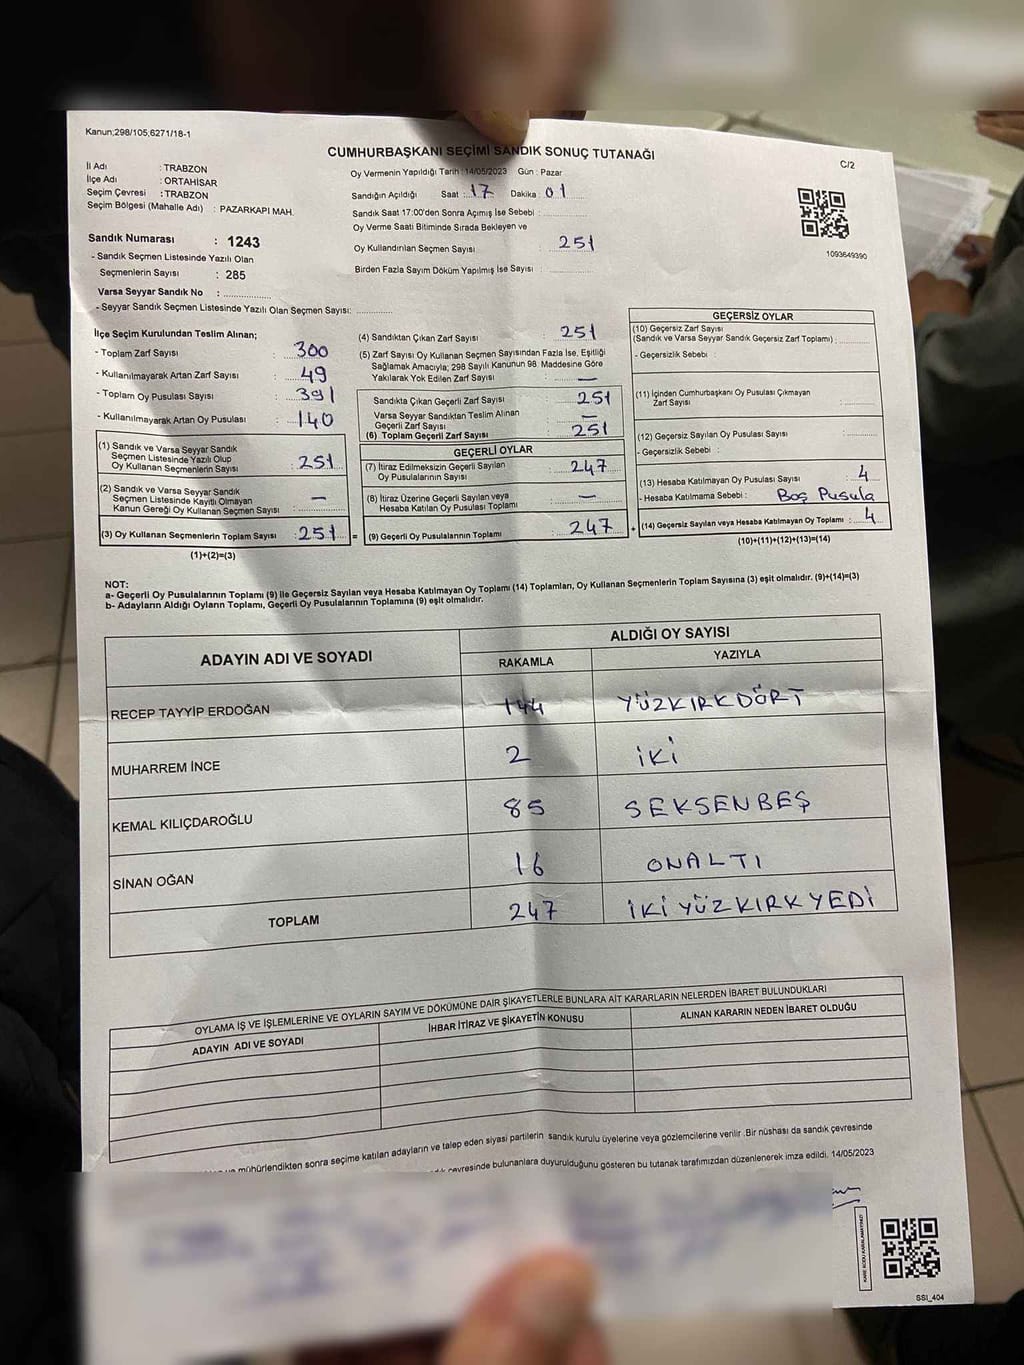 Kanun;298/105,6271/18-1
CUMHURBAŞKANI SEÇİMİ SANDIK SONUÇ TUTANAĞI
C/2
İl Adı : TRABZON
İlçe Adı : ORTAHİSAR
Seçim Çevresi : TRABZON
Seçim Bölgesi (Mahalle Adı) : PAZARKAPI MAH.
Oy Vermenin Yapıldığı Tarih :14/05/2023 Gün : Pazar
Sandığın Açıldığı Saat :17 Dakika : 01
Sandık Saat 17:00'den Sonra Açımış İse Sebebi :
Oy Verme Saati Bitiminde Sırada Bekleyen ve
Oy Kullandırılan Seçmen Sayısı : 251
Birden Fazla Sayım Döküm Yapılmış İse Sayısı :
1093649390
Sandık Numarası : 1243
- Sandık Seçmen Listesinde Yazılı Olan
Seçmenlerin Sayısı : 285
Varsa Seyyar Sandık No :
- Seyyar Sandık Seçmen Listesinde Yazılı Olan Seçmen Sayısı:
İlçe Seçim Kurulundan Teslim Alınan;
- Toplam Zarf Sayısı : 300
- Kullanılmayarak Artan Zarf Sayısı : 49
- Toplam Oy Pusulası Sayısı : 391
- Kullanılmayarak Artan Oy Pusulası : 140
(1) Sandık ve Varsa Seyyar Sandık
Seçmen Listesinde Yazılı Olup
Oy Kullanan Seçmenlerin Sayısı : 251
(2) Sandık ve Varsa Seyyar Sandık
Seçmen Listesinde Kayıtlı Olmayan
Kanun Gereği Oy Kullanan Seçmen Sayısı : —
(3) Oy Kullanan Seçmenlerin Toplam Sayısı : 251 =
(1)+(2)=(3)
(4) Sandıktan Çıkan Zarf Sayısı : 251
(5) Zarf Sayısı Oy Kullanan Seçmen Sayısından Fazla İse, Eşitliği
Sağlamak Amacıyla; 298 Sayılı Kanunun 98. Maddesine Göre
Yakılarak Yok Edilen Zarf Sayısı : —
Sandıkta Çıkan Geçerli Zarf Sayısı : 251
Varsa Seyyar Sandıktan Teslim Alınan
Geçerli Zarf Sayısı : —
(6) Toplam Geçerli Zarf Sayısı : 251
GEÇERLİ OYLAR
(7) İtiraz Edilmeksizin Geçerli Sayılan
Oy Pusulasının Sayısı : 247
(8) İtiraz Üzerine Geçerli Sayılan veya
Hesaba Katılan Oy Pusulası Toplamı : —
(9) Geçerli Oy Pusulalarının Toplamı : 247 +
GEÇERSİZ OYLAR
(10) Geçersiz Zarf Sayısı
(Sandık ve Varsa Seyyar Sandık Geçersiz Zarf Toplamı) :
- Geçersizlik Sebebi :
(11) İçinden Cumhurbaşkanı Oy Pusulası Çıkmayan
Zarf Sayısı :
(12) Geçersiz Sayılan Oy Pusulası Sayısı :
- Geçersizlik Sebebi :
(13) Hesaba Katılmayan Oy Pusulası Sayısı : 4
- Hesaba Katılmama Sebebi : Boş Pusula
(14) Geçersiz Sayılan veya Hesaba Katılmayan Oy Toplamı : 4
(10)+(11)+(12)+(13)=(14)
NOT:
a- Geçerli Oy Pusulalarının Toplamı (9) ile Geçersiz Sayılan veya Hesaba Katılmayan Oy Toplamı (14) Toplamları, Oy Kullanan Seçmenlerin Toplam Sayısına (3) eşit olmalıdır. (9)+(14)=(3)
b- Adayların Aldığı Oyların Toplamı, Geçerli Oy Pusulalarının Toplamına (9) eşit olmalıdır.
ADAYIN ADI VE SOYADI
ALDIĞI OY SAYISI
RAKAMLA YAZIYLA
RECEP TAYYİP ERDOĞAN 144 YÜZKIRKDÖRT
MUHARREM İNCE 2 İKİ
KEMAL KILIÇDAROĞLU 85 SEKSENBEŞ
SİNAN OĞAN 16 ONALTI
TOPLAM 247 İKİYÜZKIRKYEDİ
OYLAMA İŞ VE İŞLEMLERİNE VE OYLARIN SAYIM VE DÖKÜMÜNE DAİR ŞİKAYETLERLE BUNLARA AİT KARARLARIN NELERDEN İBARET BULUNDUKLARI
ADAYIN ADI VE SOYADI İHBAR İTİRAZ VE ŞİKAYETİN KONUSU ALINAN KARARIN NEDEN İBARET OLDUĞU
mühürlendikten sonra seçime katılan adayların ve talep eden siyasi partilerin sandık kurulu üyelerine veya gözlemcilerine verilir .Bir nüshası da sandık çevresinde
çevresinde bulunanlara duyurulduğunu gösteren bu tutanak tarafımızdan düzenlenerek imza edildi. 14/05/2023
KARE KODU KARALAMAYINIZ!
SSI_404